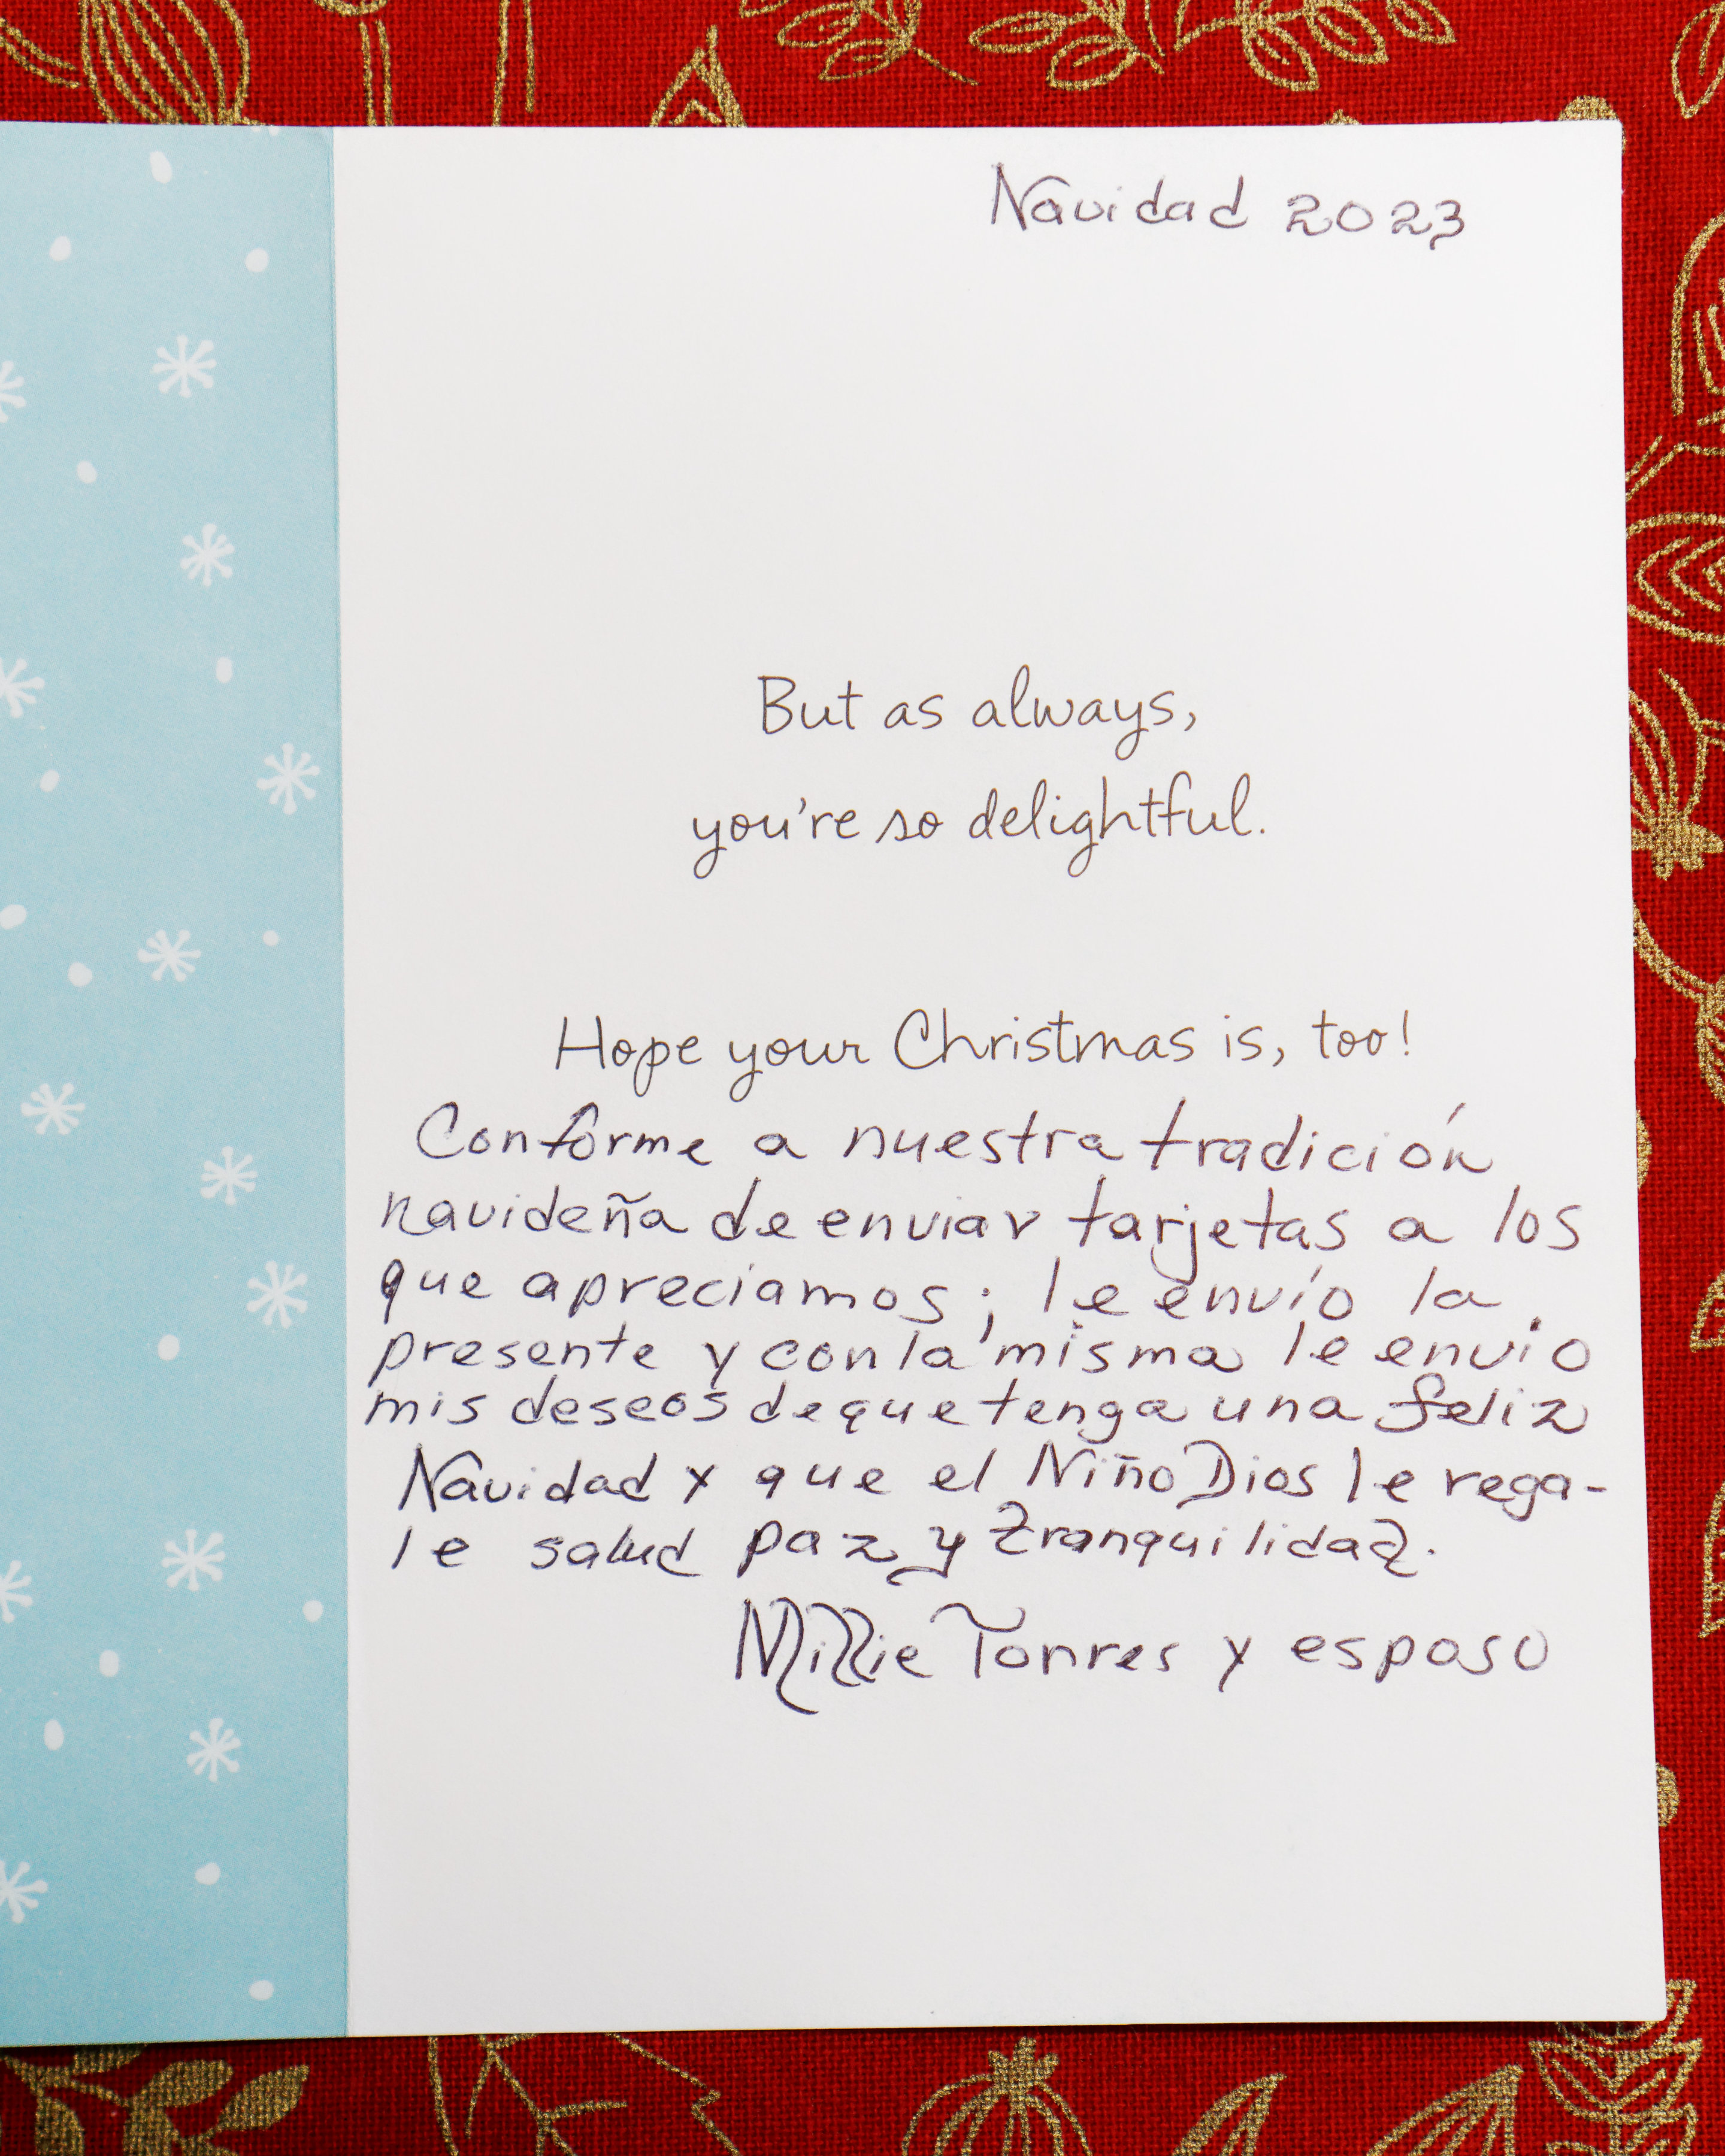 Navidad 2023
But as always,
you're so delightful.
Hope your Christmas is, too!
Conforme a nuestra tradición
navideña de enviar tarjetas a los
que apreciamos; le envío la
presente y con la misma le envío
mis deseos de que tenga una feliz
Navidad y que el Niño Dios le rega-
le salud paz y tranquilidad.
Millie Torres y esposo